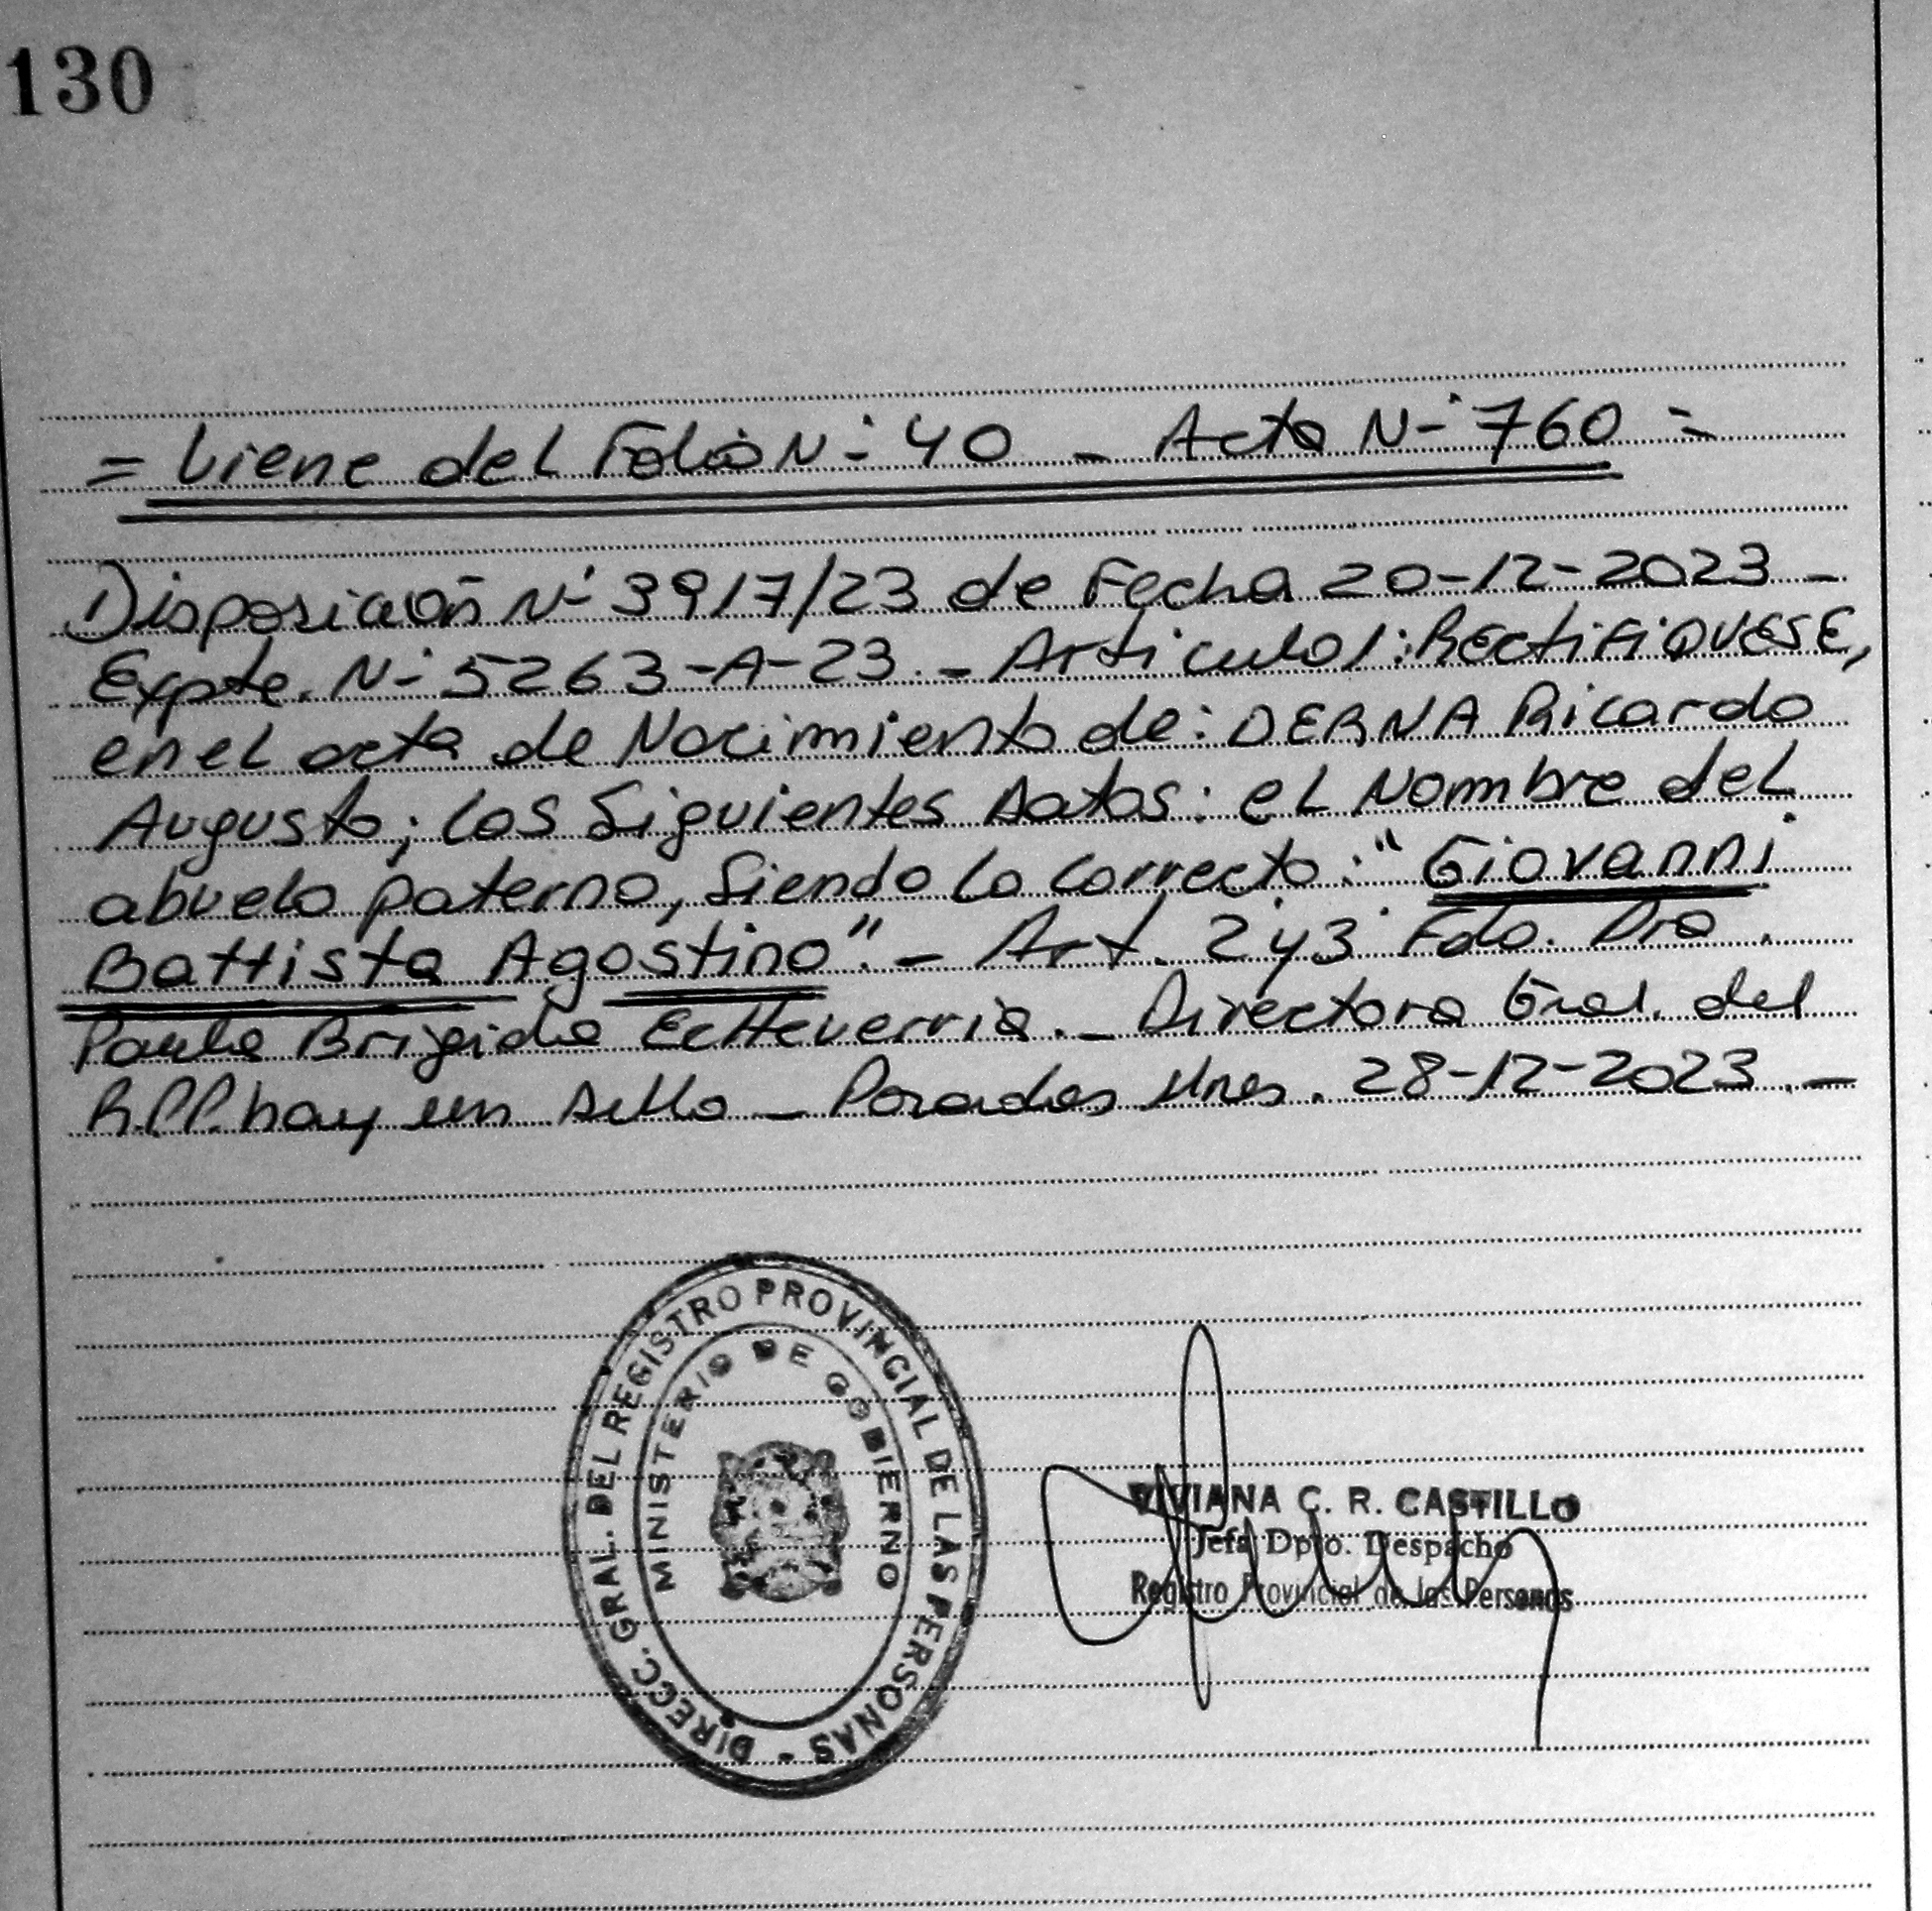 130
= Viene del Folio N-° 40 - Acta N-° 760 =
Disposición N-° 3917/23 de Fecha 20-12-2023 -
Expte. N-° 5263-A-23 - Articulo 1: RECtiFiQUESE,
en el acta de Nacimiento de: DERNA Ricardo
Augusto; los Siguientes Datos: el Nombre del
abuelo paterno, Siendo lo correcto: "Giovanni
Battista Agostino". - Art. 2° y 3° Fdo. Dra.
Paula Brigida Echeverria. - Directora Gral. del
R.P.P. hay un sello - Posadas Mnes. 28-12-2023 -
DIRECC. GRAL. DEL REGISTRO PROVINCIAL DE LAS PERSONAS -
MINISTERIO DE GOBIERNO
VIVIANA C. R. CASTILLO
Jefa Dpto. Despacho
Registro Provincial de las Personas